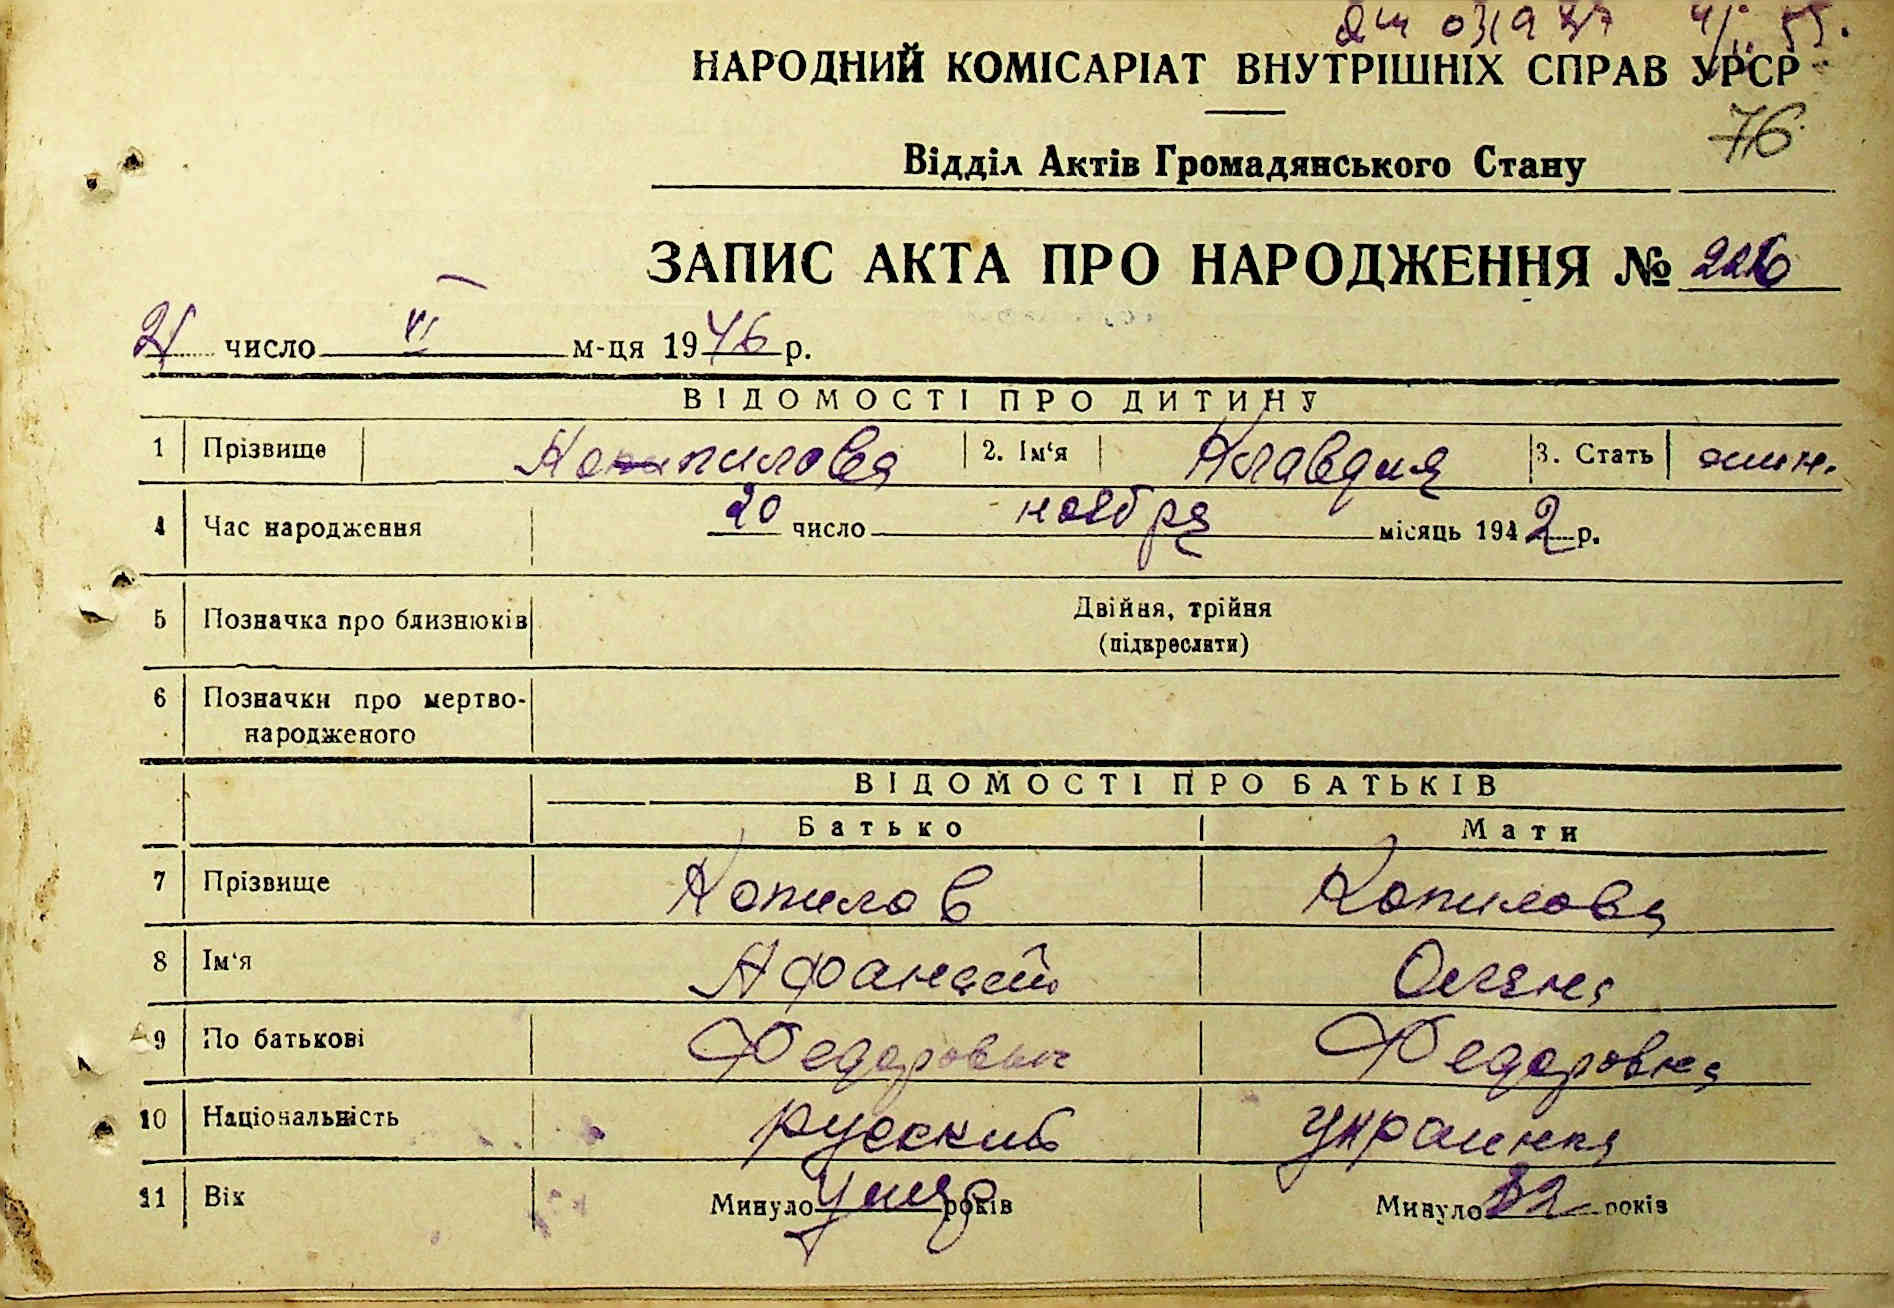 НАРОДНИЙ КОМІСАРІАТ ВНУТРІШНІХ СПРАВ УРСР
76
Відділ Актів Громадянського Стану
ЗАПИС АКТА ПРО НАРОДЖЕННЯ № 226
21 число VI м-ця 1946 р.
ВІДОМОСТІ ПРО ДИТИНУ
1 Прізвище Копилова 2. Ім'я Клавдия 3. Стать
4 Час народження 20 число ноября місяць 1942 р.
5 Позначка про близнюків Двійня, трійня
(підкреслити)
6 Позначки про мертво-
народженого
ВІДОМОСТІ ПРО БАТЬКІВ
Батько Мати
7 Прізвище Копилов Копилова
8 Ім'я Афанасий
9 По батькові Федорович Федоровна
10 Національність русский украинка
11 Вік Минуло умер років Минуло 32 років